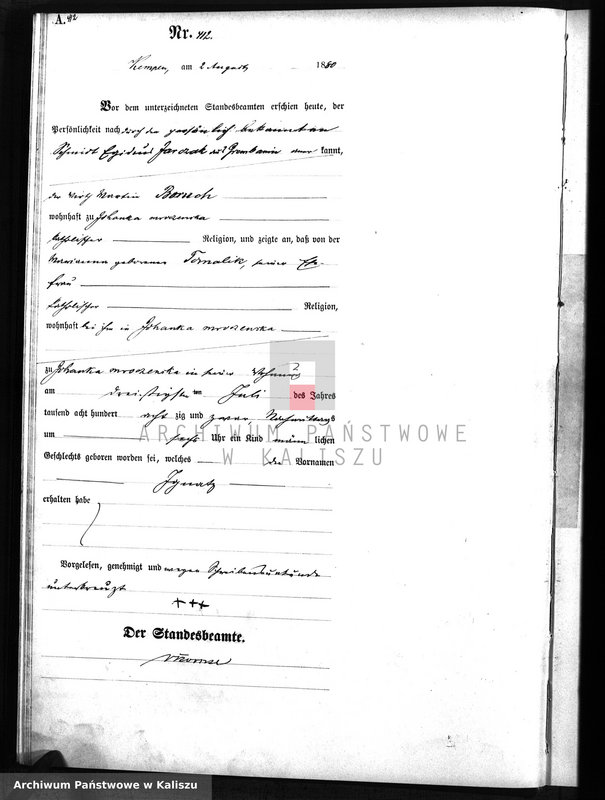 A. 92
Nr. 412.
Kempen, am 2 August 1880
Vor dem unterzeichneten Standesbeamten erschien heute, der
Persönlichkeit nach durch den persönlich bekannten
Schmidt Egidius Jarczak aus kannt,
der Wirth Martin Boruch
wohnhaft zu Johanka mroczenska
katholischer Religion, und zeigte an, daß von der
Marianna geborenen Tomalik, seiner Ehe-
frau
katholischer Religion,
wohnhaft bei ihm in Johanka mroczenska
zu Johanka mroczenska in seiner Wohnung
am dreißigsten Juli des Jahres
tausend acht hundert acht zig und zwar Nachmittags
um sechs Uhr ein Kind männlichen
Geschlechts geboren worden sei, welches den Vornamen
Ignatz
erhalten habe
Vorgelesen, genehmigt und wegen Schreibensunkunde
unterkreuzt
+++
Der Standesbeamte.
ARCHIWUM PAŃSTWOWE
W KALISZU
Archiwum Państwowe w Kaliszu